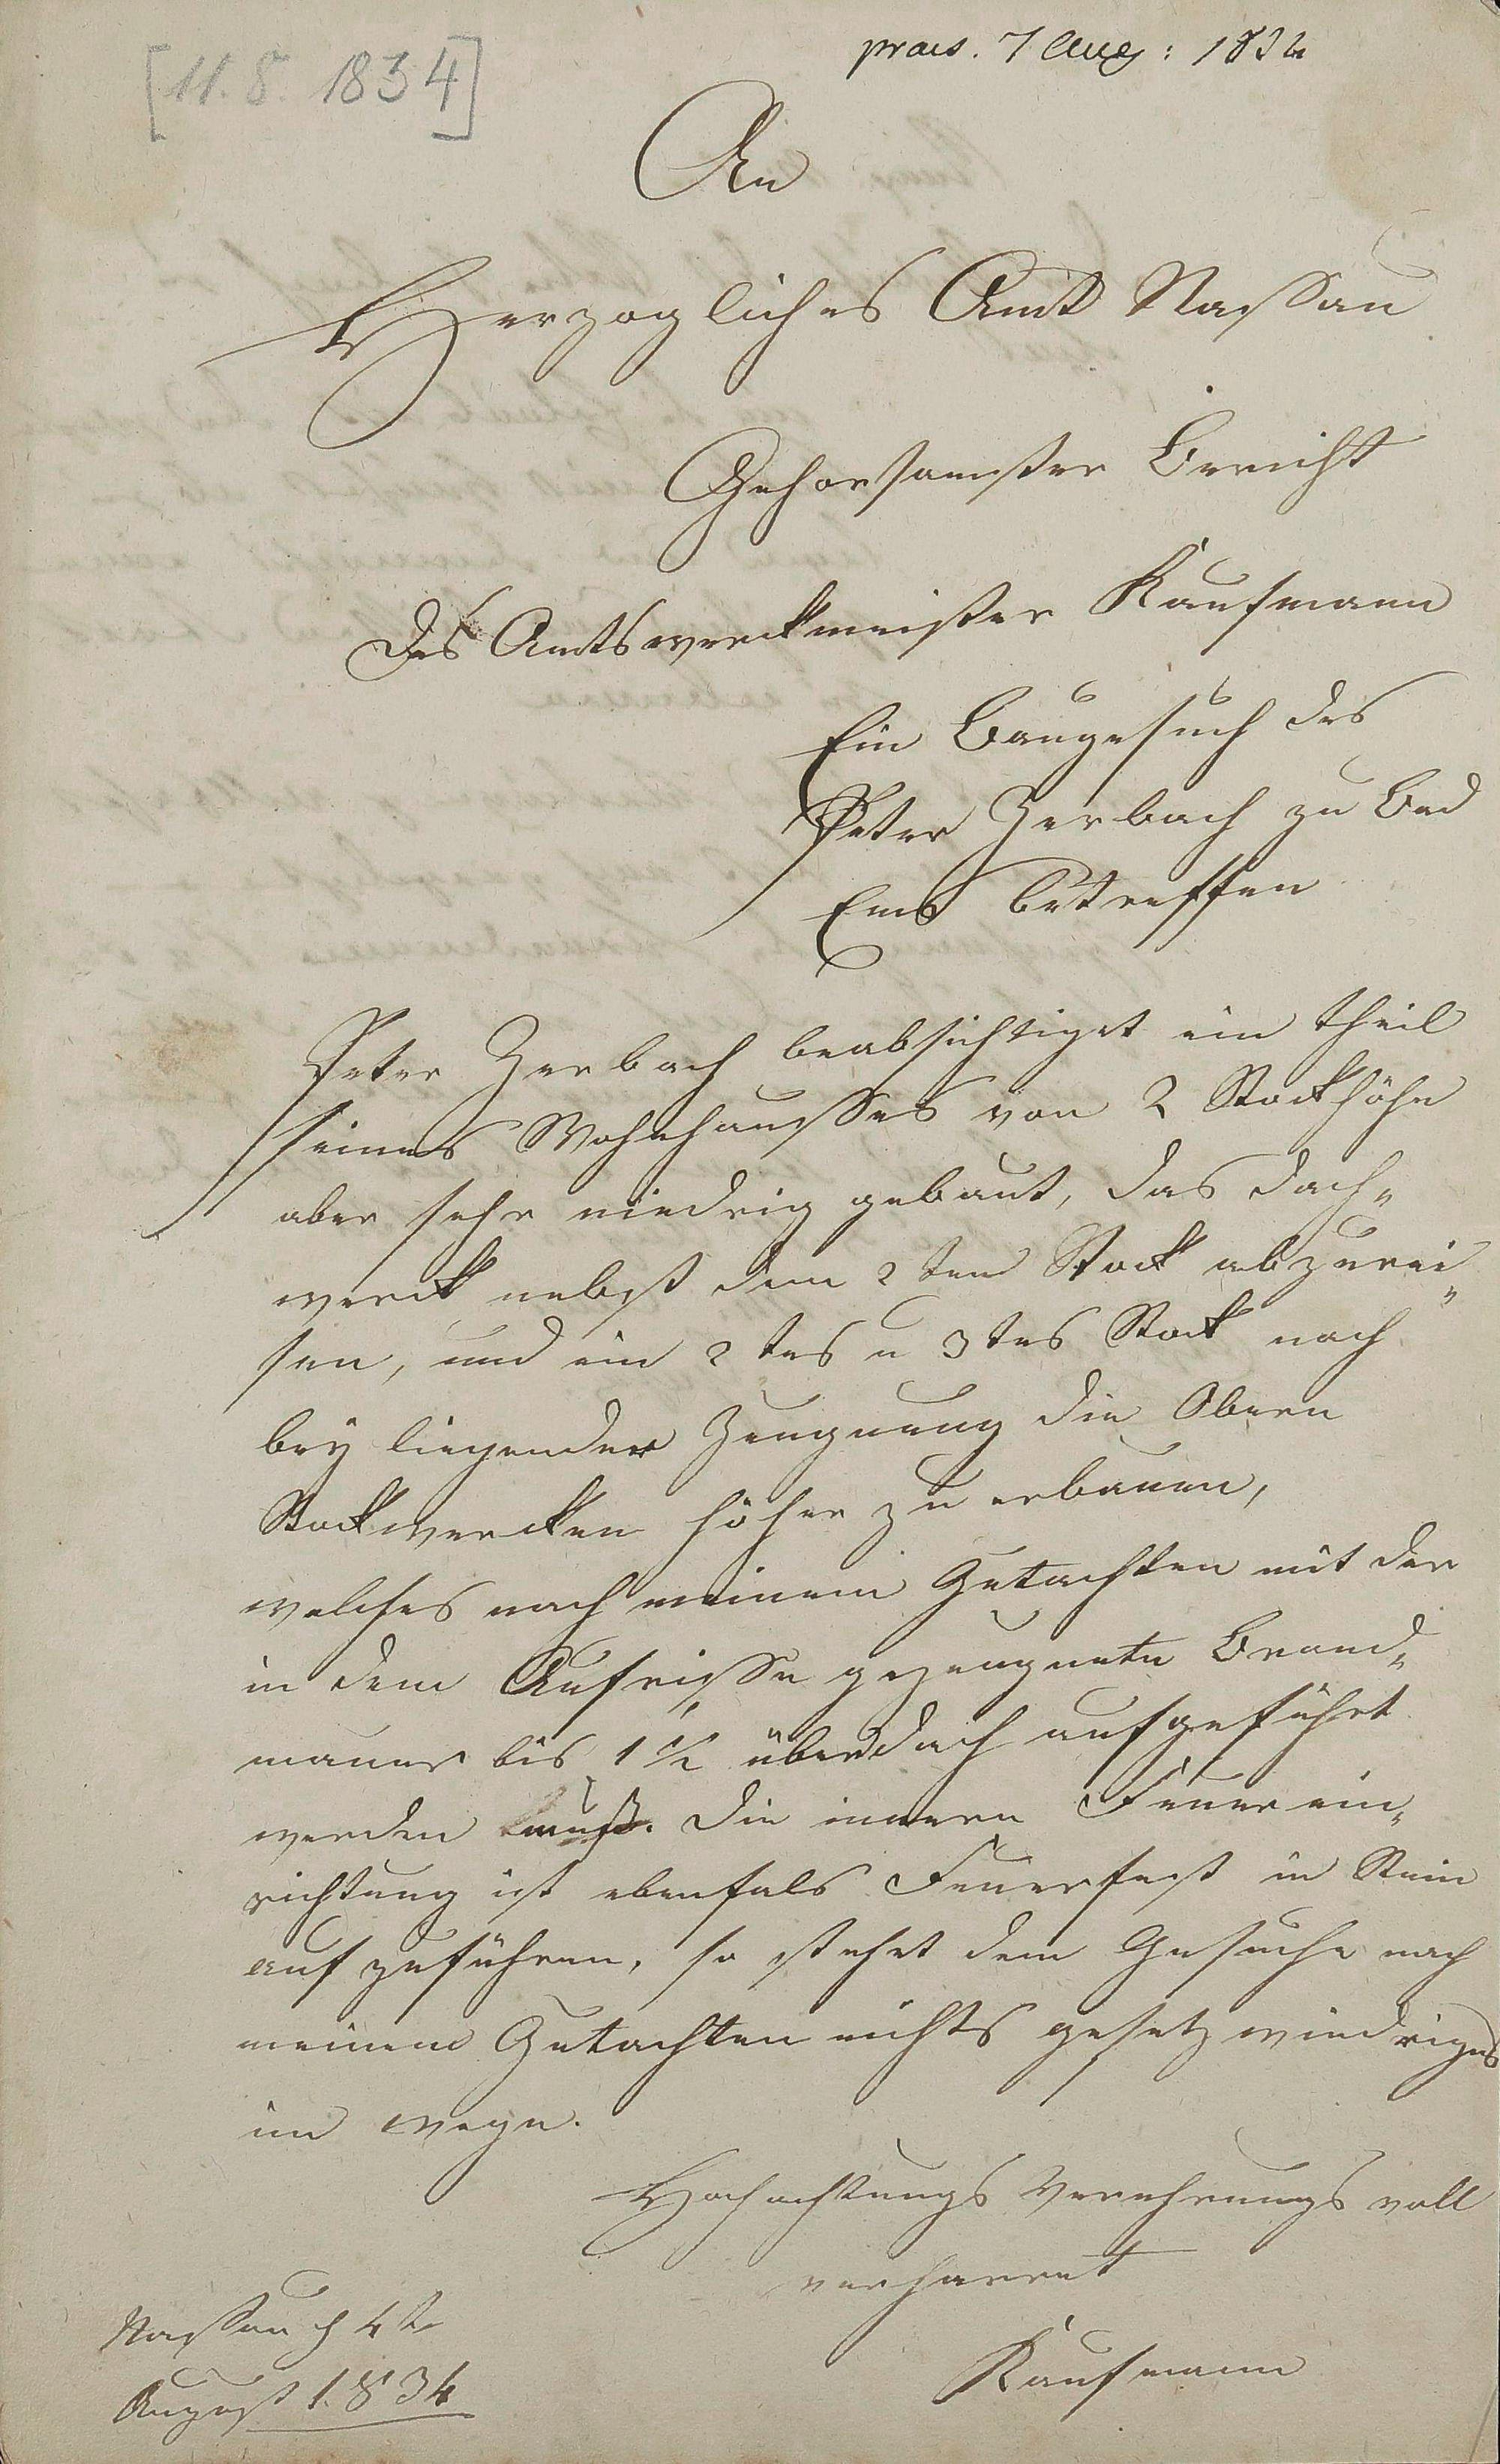 [11. 8. 1834]
praes. 7 Aug: 1834
An
Herzogliches Amt Nassau
Gehorsamster Bericht
des Amtswerckmeister Kaufmann
Ein Baugesuch des
Peter Zerbach zu Bad
Ems betreffen
Peter Zerbach beabsichtiget ein theil
seines Wohnhausses von 2 Stockhöhe
aber sehr niedrig gebaut, das Dach„
werck nebst dem 2ten Stock abzurei„
sen, und ein 2tes u 3tes Stock nach
bey liegender Zeugnung die Obern
Stockwercken höher zu erbauen,
welches nach meinem Gutachten mit der
in dem Aufrisse gezeugnete Brand„
mauer bis 1 1/2 überdach aufgeführt
werden muß. Die innern Feuerein„
richtung ist ebenfals Feuerfest in Stein
auf zuführen, so stehet dem Gesuche nach
meinem Gutachten nichts gesetz wiedriges
im wege.
Hochachtungs Verehrungs voll
verharret
Nassau d 4te
August 1834
Kaufmann